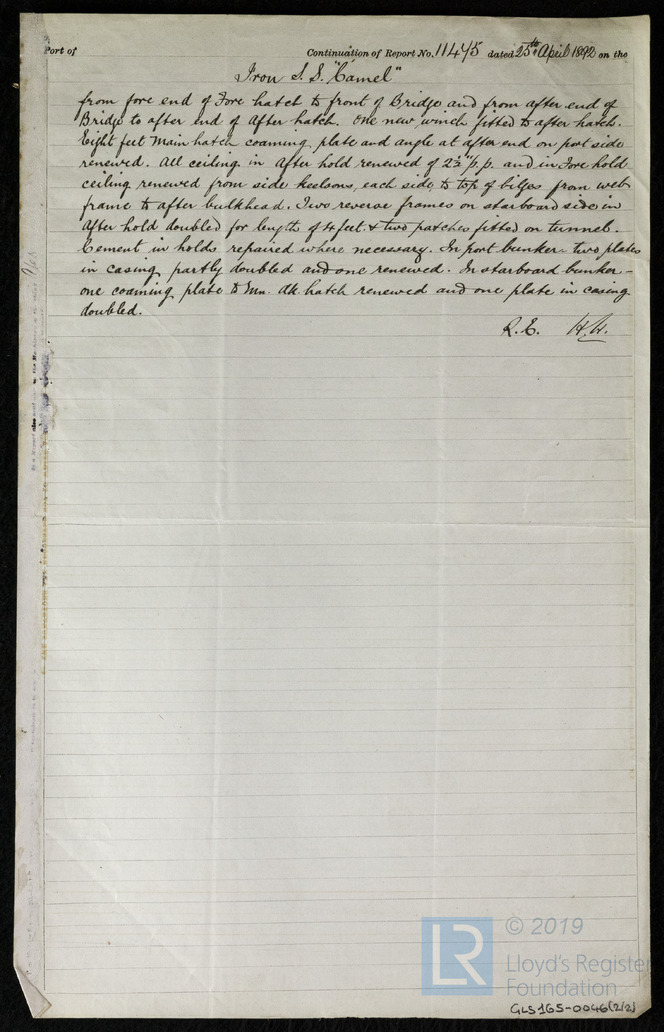 Port of Continuation of Report No. 11475 dated 25th April 1892 on the
Iron S.S. "Camel"
from fore end of Fore hatch to front of Bridge and from after end of
Bridge to after end of After hatch. One new winch fitted to after hatch.
Eight feet Main hatch coaming plate and angle at after end on port side
renewed. All ceiling in After hold renewed of 2½" p.p. and in Fore hold
ceiling renewed from side keelsons, each side to top of bilges from web
frame to after bulkhead. Two reverse frames on starboard side in
After hold doubled for length of 4 feet & two patches fitted on tunnel.
Cement in holds repaired where necessary. In port bunker - two plates
in casing partly doubled and one renewed. In starboard bunker -
one coaming plate to Mn. dk. hatch renewed and one plate in casing
doubled.
R.E. H.H.
© 2019
LR
Lloyd's Register
Foundation
GLS165-0046(2/2)